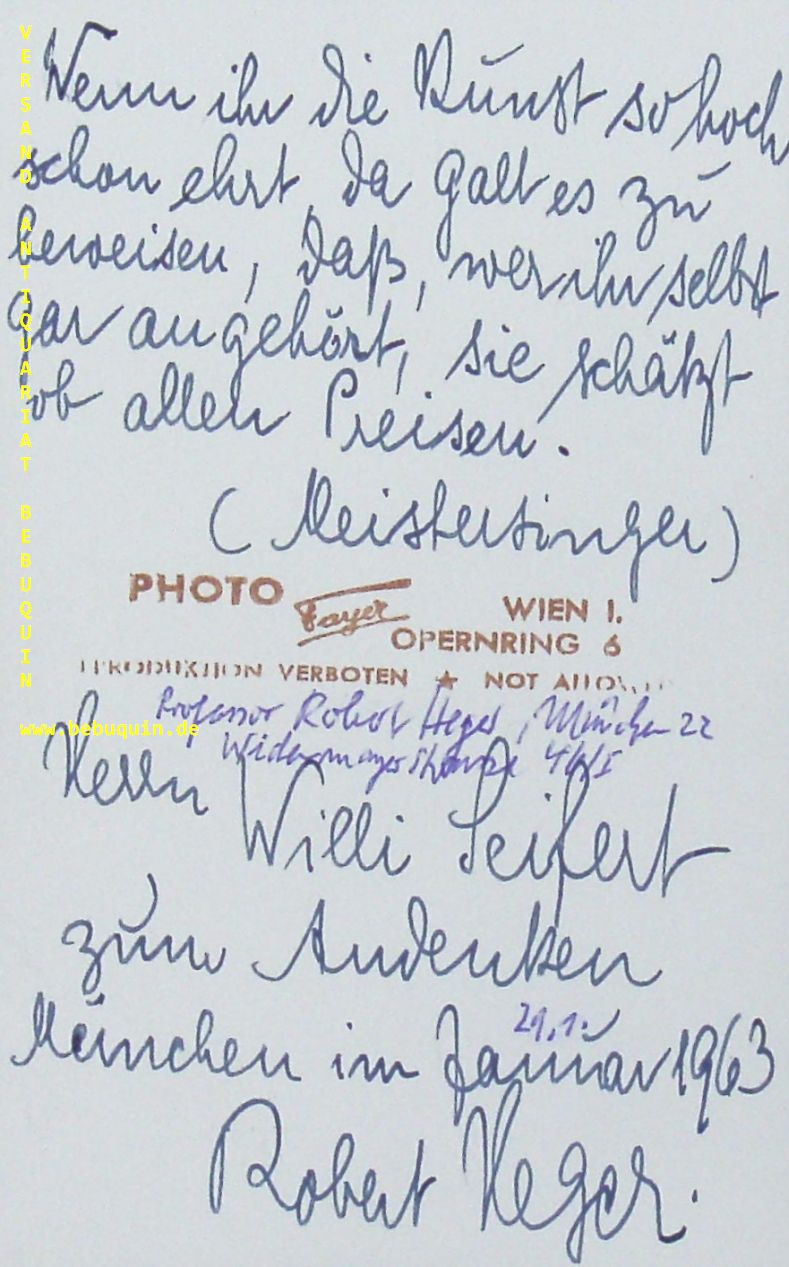 Wenn ihr die Kunst so hoch
schon ehrt, da galt es zu
beweisen, daß, wer ihr selbst
gar angehört, sie schätzt
ob allen Preisen.
(Meistersinger)
PHOTO Fayer WIEN I.
OPERNRING 6
VERBOTEN ★ NOT
Professor Robert Heger, München 22
Widenmayerstrasse
Herrn Willi Seifert
zum Andenken
29.1.
München im Januar 1963
Robert Heger.
VERSAND ANTIQUARIAT BEBUQUIN
www.bebuquin.de